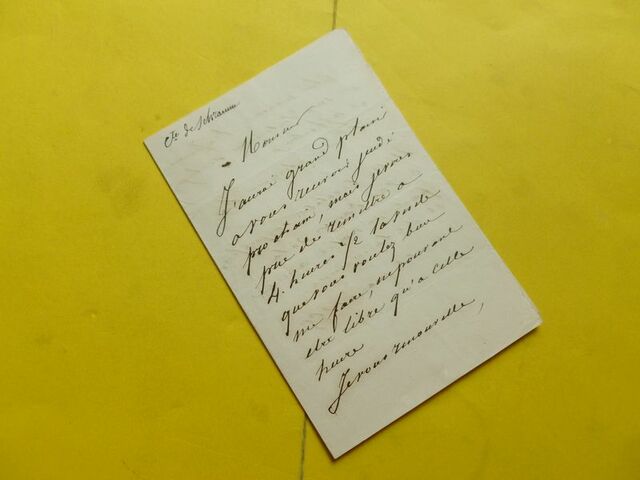 Cte de Schramm
Monsieur
J'aurai grand plaisir
a vous recevoir jeudi
prochain, mais je vous
prie de remettre a
4 heures 1/2 la visite
que vous voulez bien
me faire, ne pouvant
etre libre qu'a cette
heure
Je vous renouvelle,